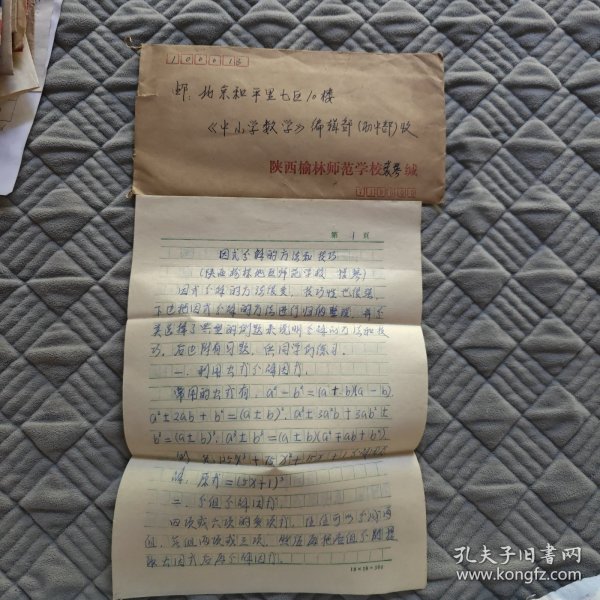 100013
邮：北京和平里七区10楼
《中小学数学》编辑部(初中部)收
陕西榆林师范学校 缄
第 1 页
因式分解的方法和技巧
(陕西榆林地区师范学校
因式分解的方法很多，技巧性也很强，
下边把因式分解的方法进行归纳整理，并分
类选择了典型的例题来说明分解的方法和技
巧，后边附有习题，供同学们练习。
一、利用公式分解因式。
常用的公式有：a²-b²=(a±b)(a-b)
a²±2ab+b²=(a±b)², a³±3a²b+3ab²±
b³=(a±b)³, a³±b³=(a±b)(a²∓ab+b²)
例 125x³+75x²+15x+1
解：原式=(5x+1)³
二、分组分解因式。
四次或六次的多项式，往往可以分成两
组，每组两次或三项，然后再把各组分别提
取公因式后再分解因式。
孔夫子旧书网
www.kongfz.com